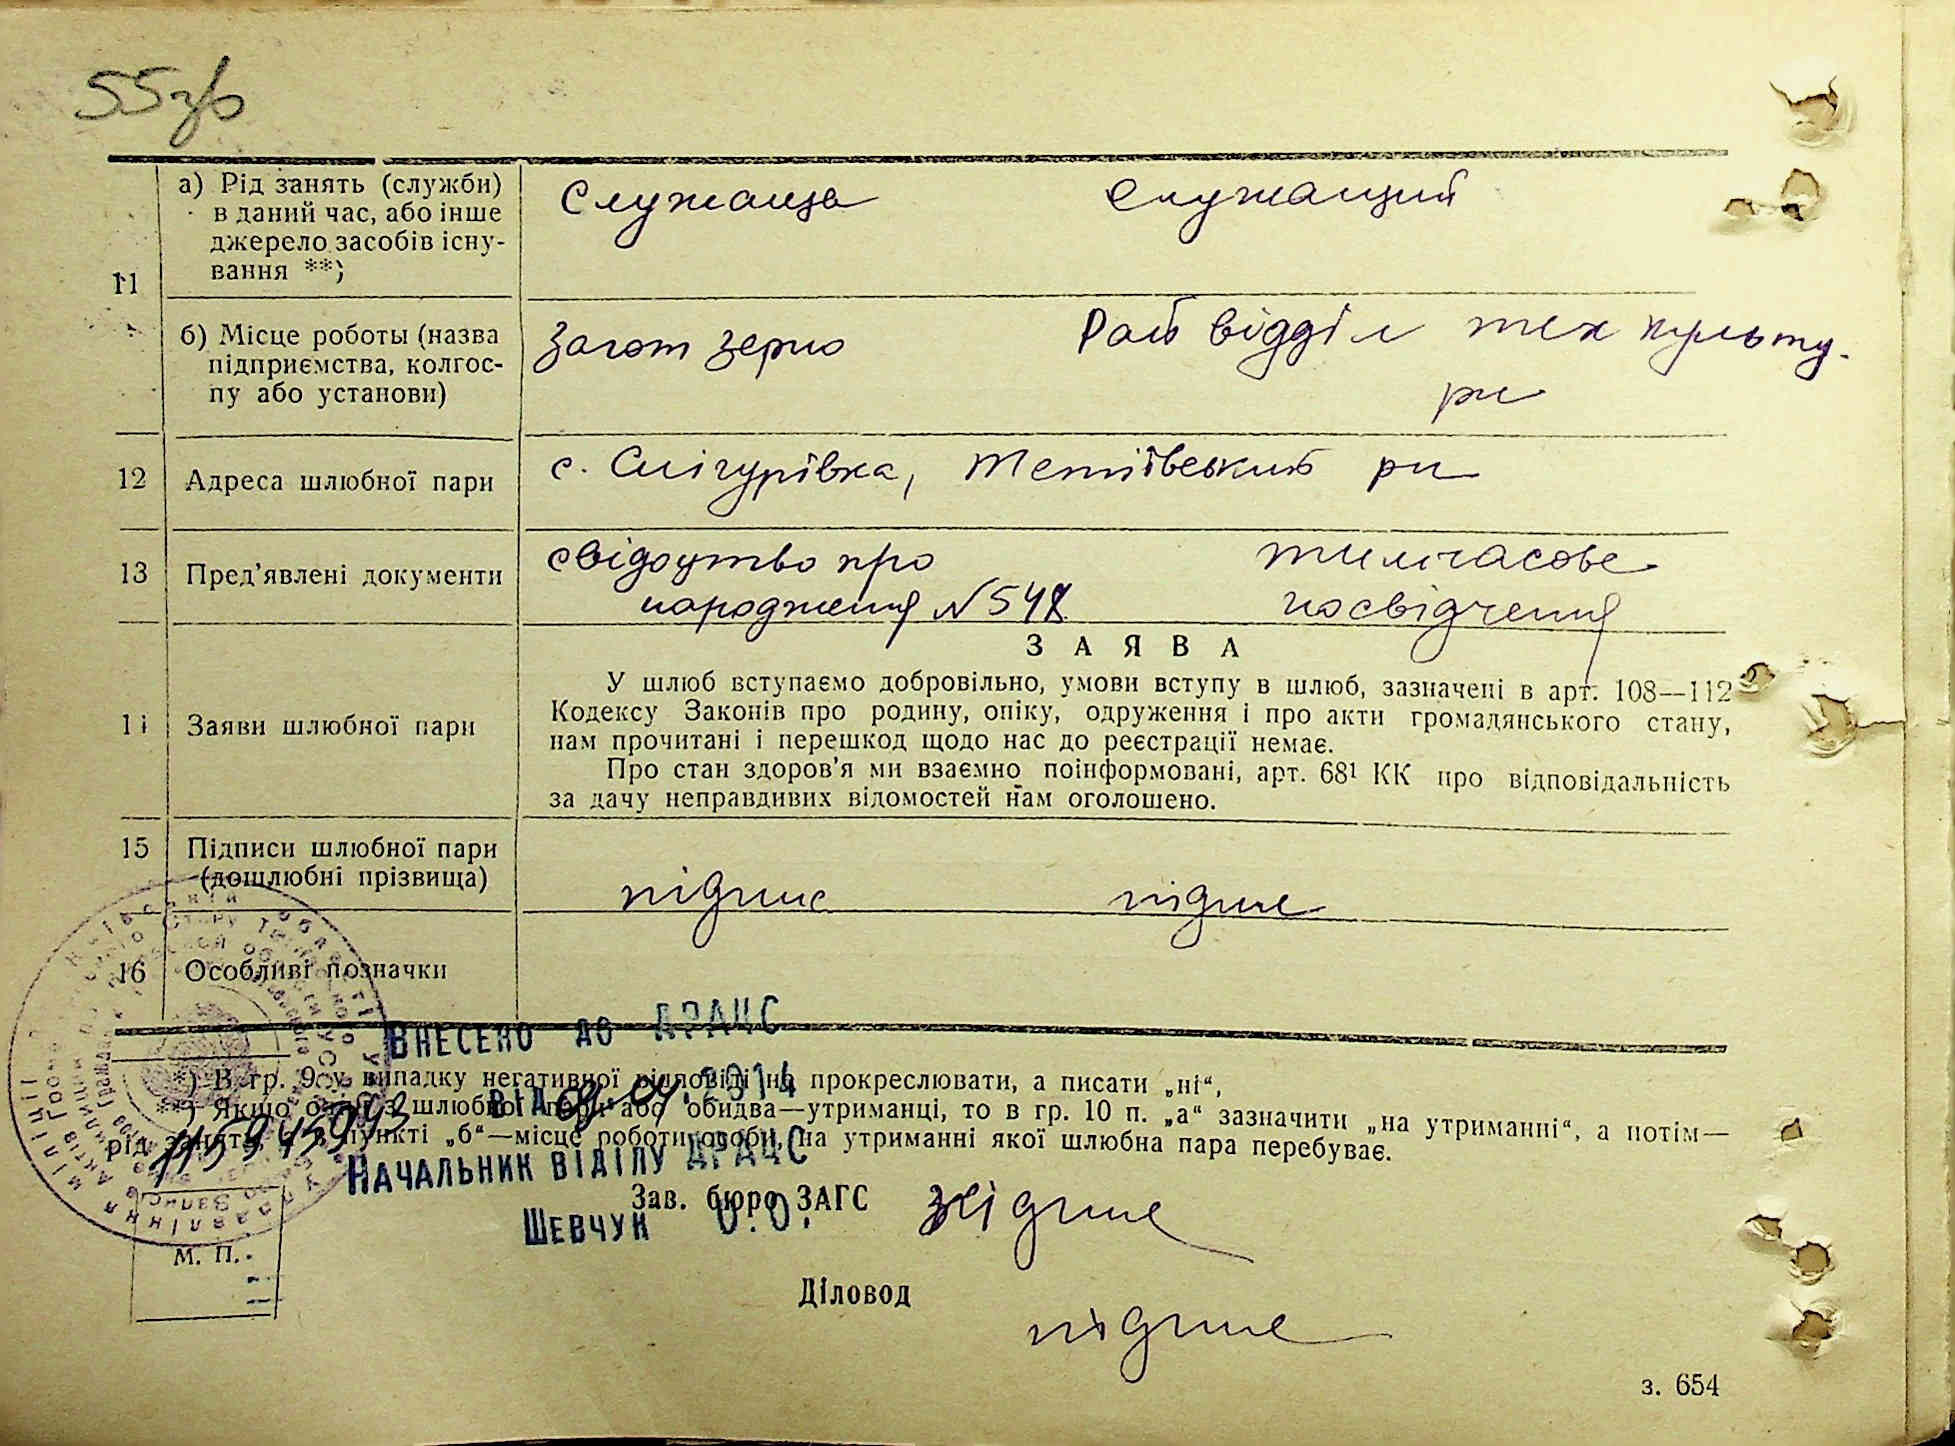 55зв
а) Рід занять (служби) Служаща Служащий
в даний час, або інше
джерело засобів існу-
11 вання **)
б) Місце роботы (назва Загот зерно Рай відділ тех культу-
підприємства, колгос- ри
пу або установи)
12 Адреса шлюбної пари с. Снігурівка, Тетіївський рн
13 Пред’явлені документи свідоцтво про тимчасове
народження №548 посвідчення
З А Я В А
У шлюб вступаємо добровільно, умови вступу в шлюб, зазначені в арт. 108—112
Кодексу Законів про родину, опіку, одруження і про акти громадянського стану,
14 Заяви шлюбної пари нам прочитані і перешкод щодо нас до реєстрації немає.
Про стан здоров’я ми взаємно поінформовані, арт. 68¹ КК про відповідальність
за дачу неправдивих відомостей нам оголошено.
15 Підписи шлюбної пари
(дошлюбні прізвища) підпис підпис
16 Особливі позначки
ВНЕСЕНО ДО ДРАЦС
*) В гр. 9 у випадку негативної відповіді не прокреслювати, а писати „ні“,
ВІД 2014
**) Якщо один з шлюбної пари або обидва—утриманці, то в гр. 10 п. „а“ зазначити „на утриманні“, а потім—
рід занять, а в пункті „б“—місце роботи особи, на утриманні якої шлюбна пара перебуває.
НАЧАЛЬНИК ВІДІЛУ ДРАЦС
Зав. бюро ЗАГС підпис
ШЕВЧУК О.О.
М. П.
Діловод
підпис
з. 654